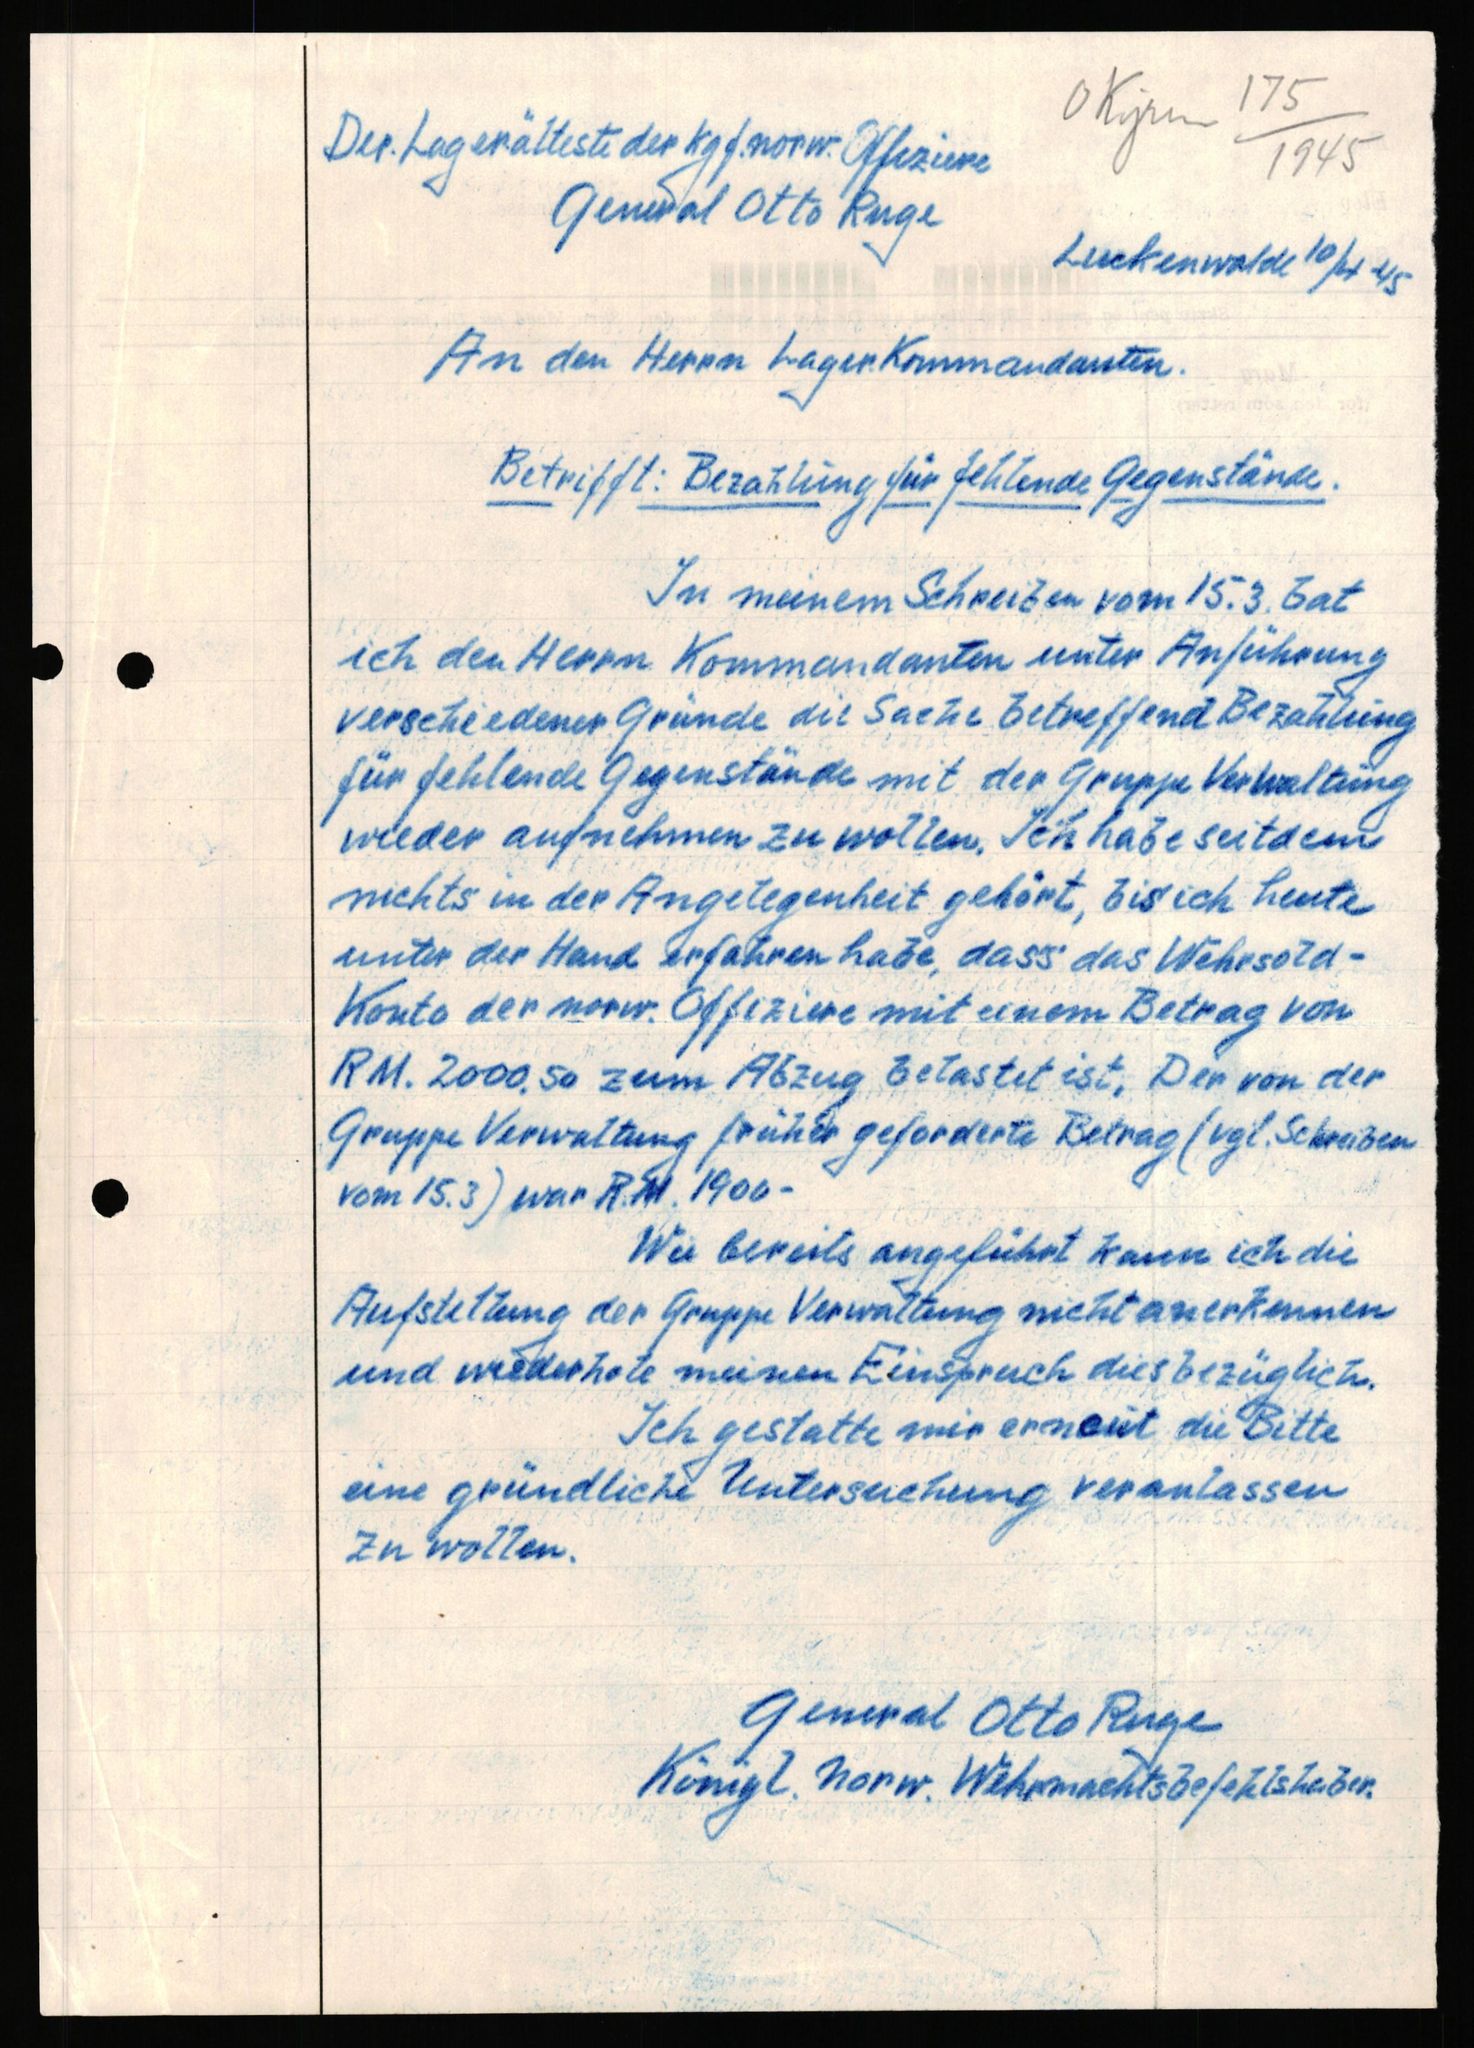 175
1945
Der Lagerälteste der kgf. norw. Offiziere
General Otto Ruge
Luckenwalde 10/4 45
An den Herrn Lager Kommandanten.
Betrifft: Bezahlung für fehlende Gegenstände.
In meinem Schreiben vom 15.3. bat
ich den Herrn Kommandanten unter Anführung
verschiedener Gründe die Sache betreffend Bezahlung
für fehlende Gegenstände mit der Gruppe Verwaltung
wieder aufnehmen zu wollen. Ich habe seitdem
nichts in der Angelegenheit gehört, bis ich heute
unter der Hand erfahren habe, dass das Wehrsold-
Konto der norw. Offiziere mit einem Betrag von
RM. 2000.50 zum Abzug belastet ist. Der von der
Gruppe Verwaltung früher geforderte Betrag (vgl. Schreiben
vom 15.3) war R.M. 1900-
Wie bereits angeführt kann ich die
Aufstellung der Gruppe Verwaltung nicht anerkennen
und wiederhole meinen Einspruch diesbezüglich.
Ich gestatte mir erneut die Bitte
eine gründliche Untersuchung veranlassen
zu wollen.
General Otto Ruge
Königl. Norw. Wehrmachtsbefehlshaber.